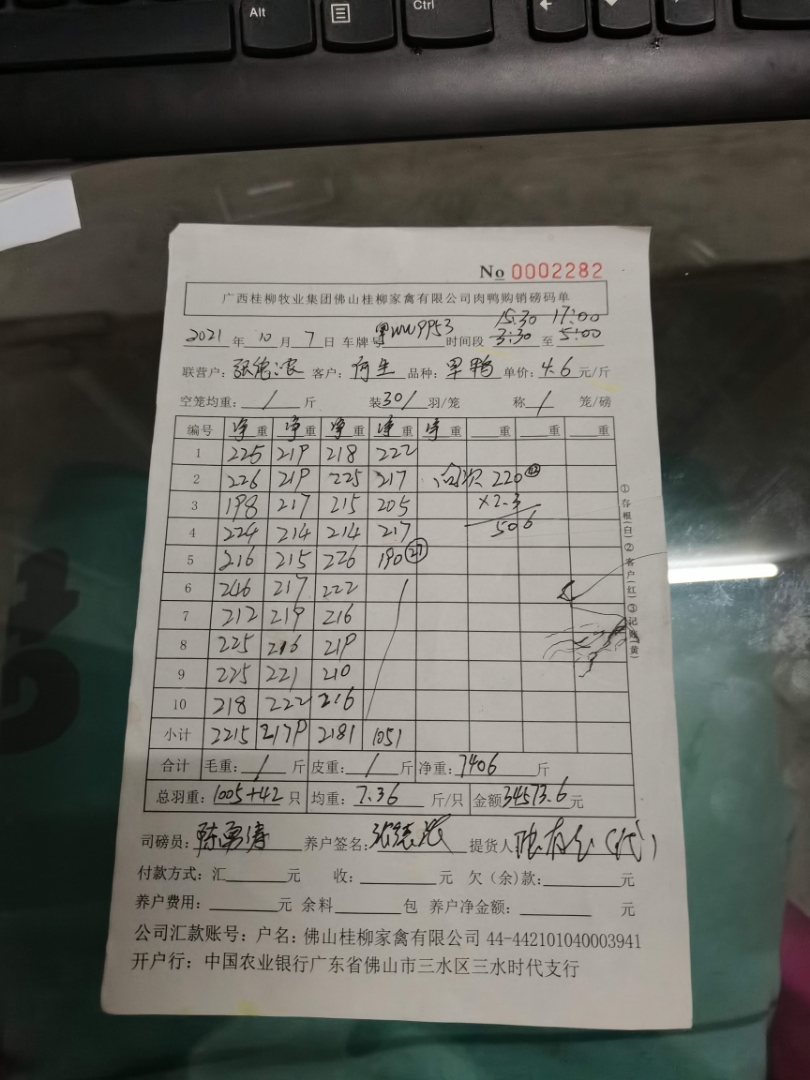 Alt
Ctrl
No 0002282
广西桂柳牧业集团佛山桂柳家禽有限公司肉鸭购销磅码单
15:30 17:00
2021 年 10 月 7 日 车牌号 粤WW9953 时间段 3:30 至 5:00
联营户: 张德浓 客户: 何生 品种: 单价: 4.6 元/斤
空笼均重: / 斤 装 30/ 羽/笼 称 / 笼/磅
编号 净重 净重 净重 净重 净重 重 重 重
1 225 219 218 222
2 226 219 225 217 220
3 198 217 215 205 ×2.3
4 224 214 214 217 506
5 216 215 226 190 27
6 246 217 222
7 212 219 216
8 225 216 219
9 225 221 210
10 218 222 216
小计 2215 2179 2181 1051
合计 毛重: / 斤 皮重: / 斤 净重: 7406 斤
总羽重: 1005+42 只 均重: 7.36 斤/只 金额 34573.6 元
司磅员: 陈勇涛 养户签名: 张德浓 提货人 (代)
付款方式: 汇 元 收: 元 欠(余)款: 元
养户费用: 元 余料 包 养户净金额: 元
公司汇款账号: 户名: 佛山桂柳家禽有限公司 44-442101040003941
开户行: 中国农业银行广东省佛山市三水区三水时代支行